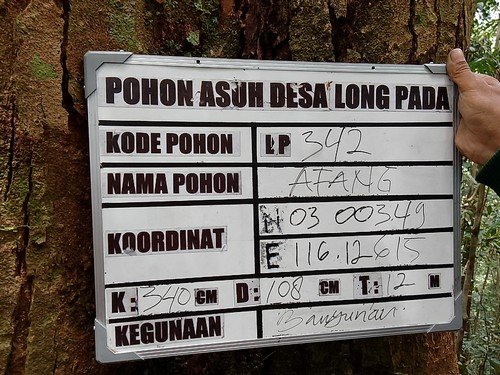 POHON ASUH DESA LONG PADA
KODE POHON LP 342
NAMA POHON AFANG
KOORDINAT N 03 00349
E 116.12615
K: 340 CM D: 108 CM T: 12 M
KEGUNAAN Bangunan.